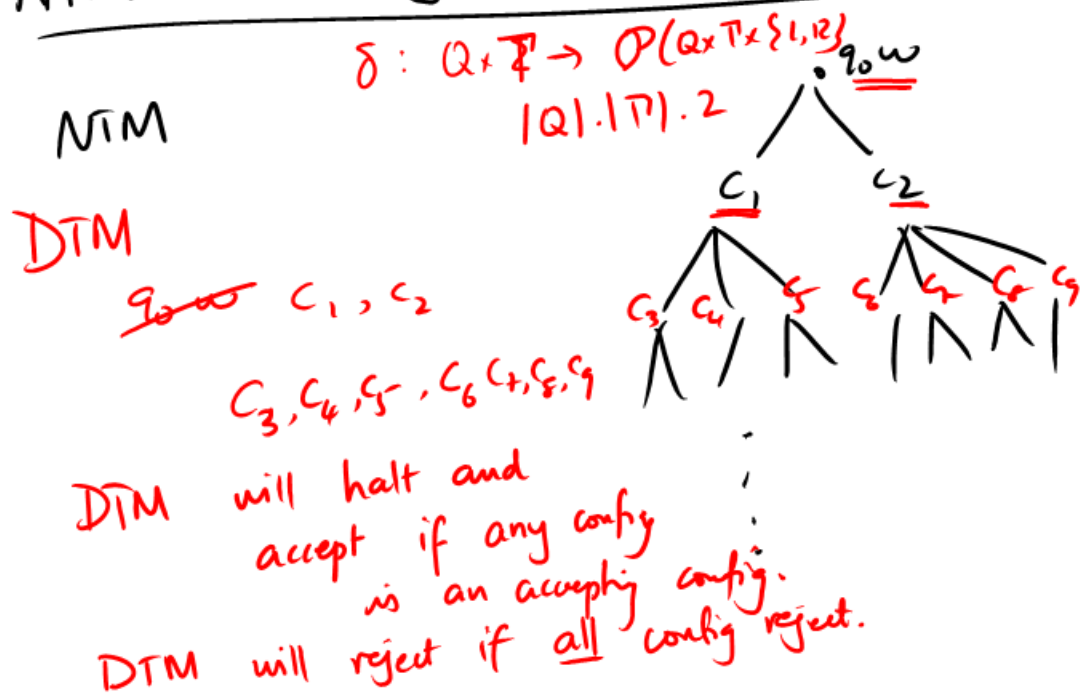 δ : Q × Γ → P(Q × Γ × {L, R})
q₀w
|Q|.|Γ|.2
NTM
C₁ C₂
DTM
q₀w C₁, C₂
C₃ C₄ C₅ C₆ C₇ C₈ C₉
C₃, C₄, C₅, C₆ C₇, C₈, C₉
DTM will halt and
accept if any config
is an accepting config.
DTM will reject if all config reject.